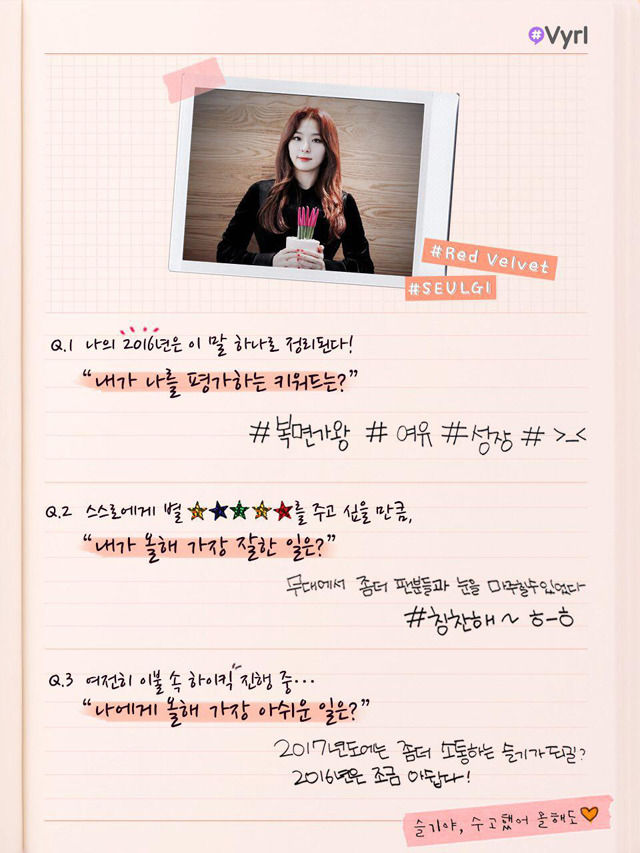 #Vyrl
#Red Velvet
#SEULGI
Q.1 나의 2016년은 이 말 하나로 정리된다!
“내가 나를 평가하는 키워드는?”
#복면가왕 #여유 #성장 # >_<
Q.2 스스로에게 별 ★★★★★를 주고 싶을 만큼,
“내가 올해 가장 잘한 일은?”
무대에서 좀더 팬분들과 눈을 마주할수있었다
#칭찬해~ ㅎ-ㅎ
Q.3 여전히 이불 속 하이킥 진행 중...
“나에게 올해 가장 아쉬운 일은?”
2017년도에는 좀더 소통하는 슬기가 되길?
2016년은 조금 아쉽다!
슬기야, 수고했어 올해도🧡